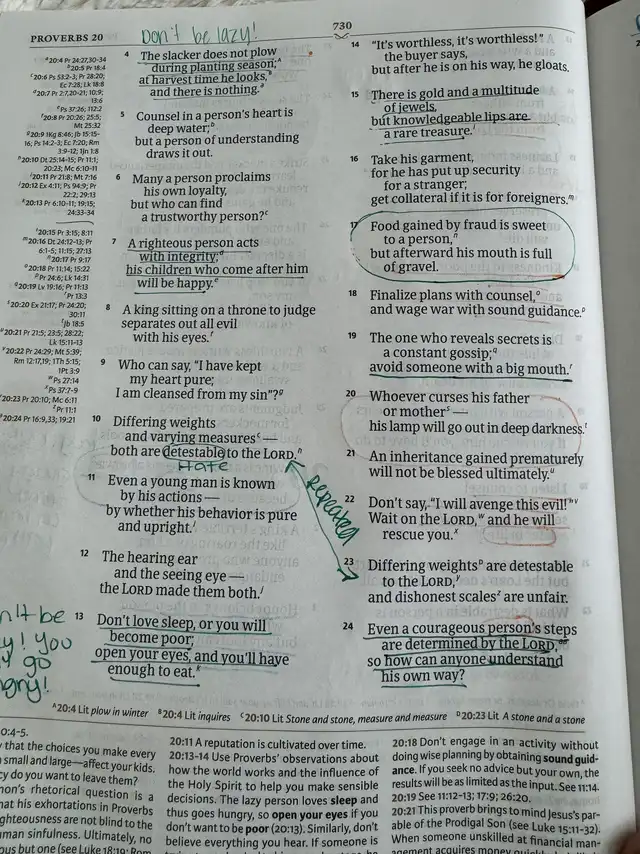 PROVERBS 20
730
Don't be lazy!
20:4 Pr 24:27,30-34
20:5 Pr 18:4
20:6 Ps 53:2-3; Pr 28:20;
Ec 7:28; Lk 18:8
20:7 Pr 2:7,20-21; 10:9;
13:6
Ps 37:26; 112:2
20:8 Pr 20:26; 25:5;
Mt 25:32
20:9 1Kg 8:46; Jb 15:15-
16; Ps 14:2-3; Ec 7:20; Rm
3:9-12; 1Jn 1:8
20:10 Dt 25:14-15; Pr 11:1;
20:23; Mc 6:10-11
20:11 Pr 21:8; Mt 7:16
20:12 Ex 4:11; Ps 94:9; Pr
22:2; 29:13
20:13 Pr 6:10-11; 19:15;
24:33-34
20:15 Pr 3:15; 8:11
20:16 Dt 24:12-13; Pr
6:1-5; 11:15; 27:13
20:17 Pr 9:17
20:18 Pr 11:14; 15:22
Pr 24:6; Lk 14:31
20:19 Lv 19:16; Pr 11:13
Pr 13:3
20:20 Ex 21:17; Pr 24:20;
30:11
Jb 18:5
20:21 Pr 21:5; 23:5; 28:22;
Lk 15:11-13
20:22 Pr 24:29; Mt 5:39;
Rm 12:17,19; 1Th 5:15;
1Pt 3:9
Ps 27:14
Ps 37:7-9
20:23 Pr 20:10; Mc 6:11
Pr 11:1
20:24 Pr 16:9,33; 19:21
4 The slacker does not plow
during planting season;ᴬ
at harvest time he looks,ᴮ
and there is nothing.ᵃ
5 Counsel in a person's heart is
deep water;ᵇ
but a person of understanding
draws it out.
6 Many a person proclaims
his own loyalty,
but who can find
a trustworthy person?ᶜ
7 A righteous person acts
with integrity;ᵈ
his children who come after him
will be happy.ᵉ
8 A king sitting on a throne to judge
separates out all evil
with his eyes.ᶠ
9 Who can say, "I have kept
my heart pure;
I am cleansed from my sin"?ᵍ
10 Differing weights
and varying measuresᶜ —
both are detestable to the LORD.ʰ
Hate
11 Even a young man is known
by his actions —
by whether his behavior is pure
and upright.ⁱ
12 The hearing ear
and the seeing eye —
the LORD made them both.ʲ
13 Don't love sleep, or you will
become poor;
open your eyes, and you'll have
enough to eat.ᵏ
n't be
y! you
go
ngry!
repeated
14 "It's worthless, it's worthless!"
the buyer says,
but after he is on his way, he gloats.
15 There is gold and a multitude
of jewels,
but knowledgeable lips are
a rare treasure.ˡ
16 Take his garment,
for he has put up security
for a stranger;
get collateral if it is for foreigners.ᵐ
17 Food gained by fraud is sweet
to a person,ⁿ
but afterward his mouth is full
of gravel.
18 Finalize plans with counsel,ᵒ
and wage war with sound guidance.ᵖ
19 The one who reveals secrets is
a constant gossip;q
avoid someone with a big mouth.ʳ
20 Whoever curses his father
or motherˢ —
his lamp will go out in deep darkness.ᵗ
21 An inheritance gained prematurely
will not be blessed ultimately.ᵘ
22 Don't say, "I will avenge this evil!"ᵛ
Wait on the LORD,ʷ and he will
rescue you.ˣ
23 Differing weightsᴰ are detestable
to the LORD,ʸ
and dishonest scalesᶻ are unfair.
24 Even a courageous person's steps
are determined by the LORD,
so how can anyone understand
his own way?
ᴬ20:4 Lit plow in winter ᴮ20:4 Lit inquires ᶜ20:10 Lit Stone and stone, measure and measure ᴰ20:23 Lit A stone and a stone
0:4-5.
that the choices you make every
small and large—affect your kids.
cy do you want to leave them?
mon's rhetorical question is a
hat his exhortations in Proverbs
ghteousness are not blind to the
uman sinfulness. Ultimately, no
ous but one (see Luke 18:19; Rom
20:11 A reputation is cultivated over time.
20:13-14 Use Proverbs' observations about
how the world works and the influence of
the Holy Spirit to help you make sensible
decisions. The lazy person loves sleep and
thus goes hungry, so open your eyes if you
don't want to be poor (20:13). Similarly, don't
believe everything you hear. If someone is
20:18 Don't engage in an activity without
doing wise planning by obtaining sound guid-
ance. If you seek no advice but your own, the
results will be as limited as the input. See 11:14.
20:19 See 11:12-13; 17:9; 26:20.
20:21 This proverb brings to mind Jesus's par-
able of the Prodigal Son (see Luke 15:11-32).
When someone unskilled at financial man-
agement acquires money